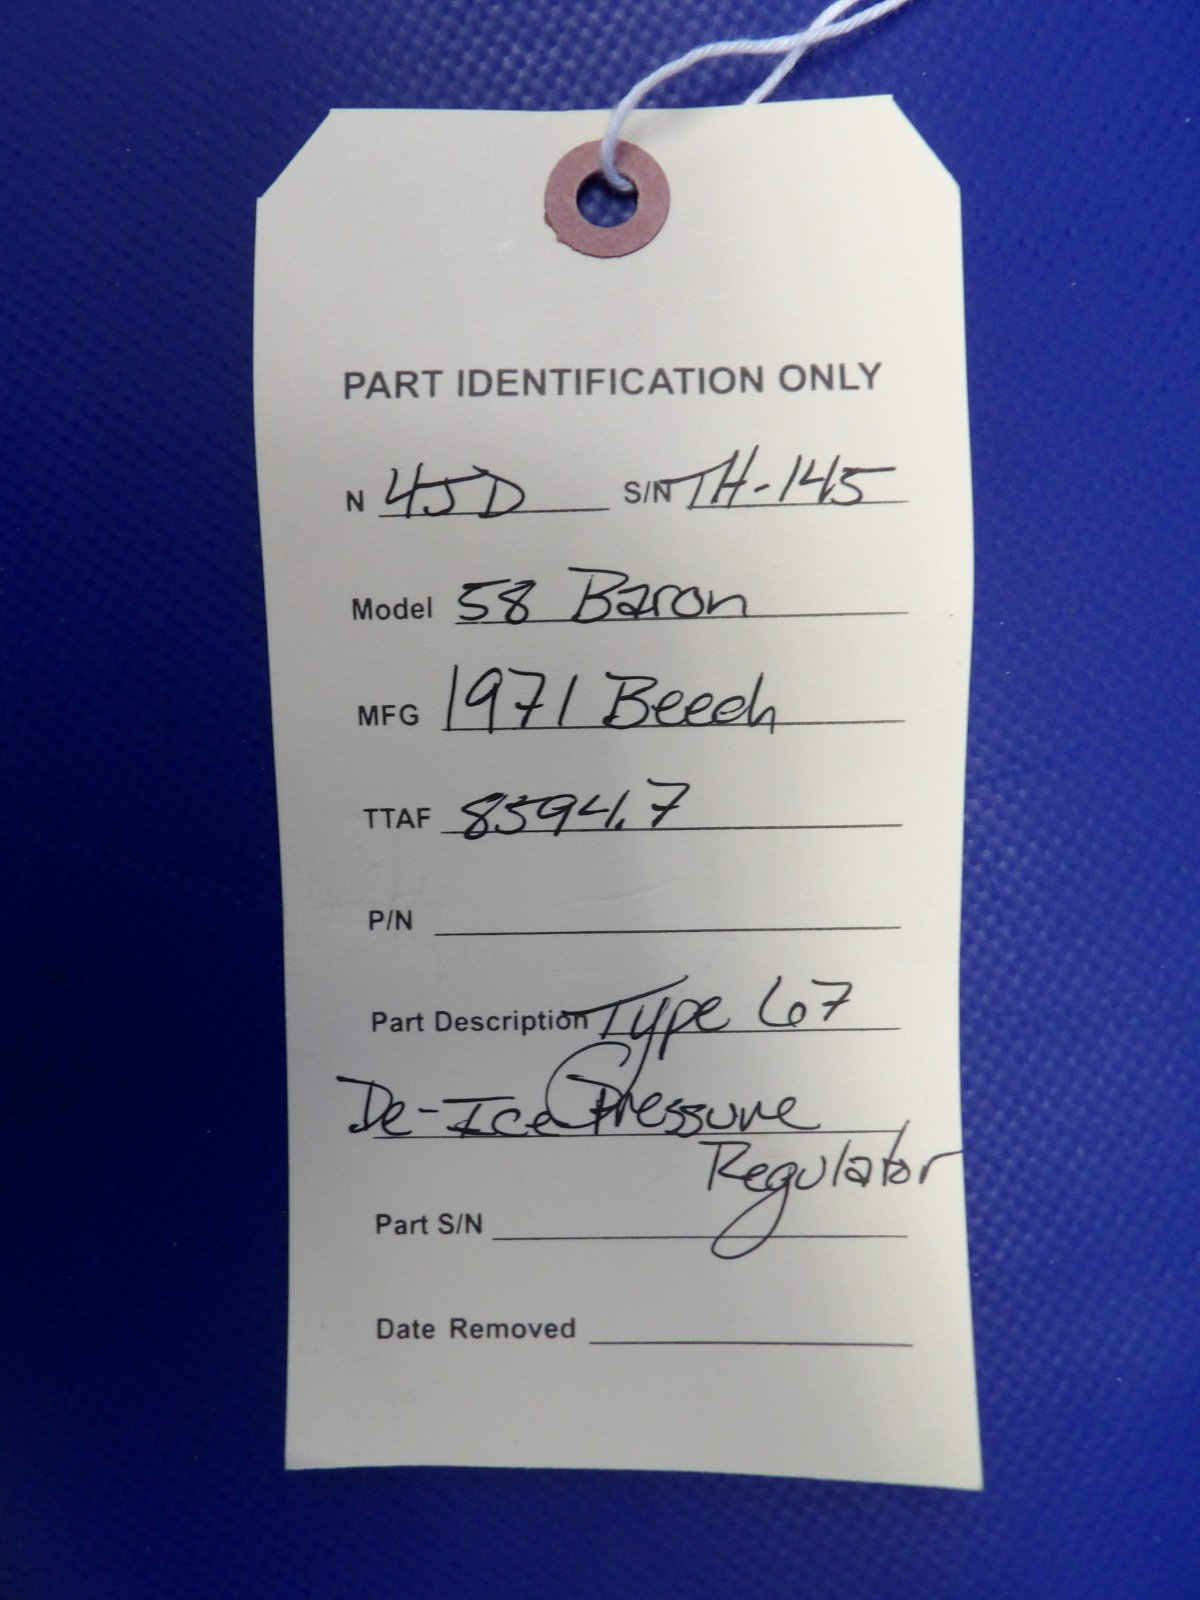 PART IDENTIFICATION ONLY
N 45D S/N TH-145
Model 58 Baron
MFG 1971 Beech
TTAF 8594.7
P/N
Part Description Type 67
De-Ice Pressure
Regulator
Part S/N
Date Removed